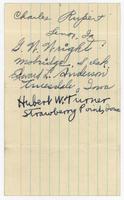 Charles Rupert
Lenox, Ia
G. W. Wright
Mobridge, S. dak.
Edward L. Anderson
Truesdale, Iowa
Hubert W. Turner
Strawberry Point, Iowa